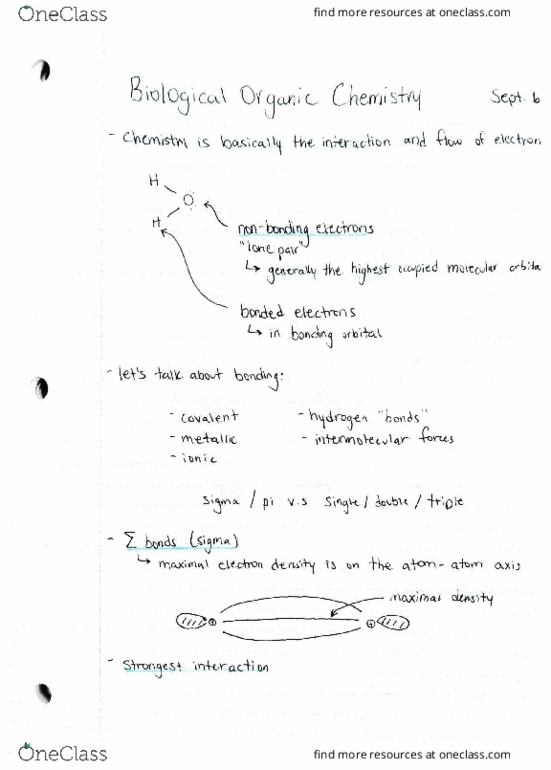 OneClass
find more resources at oneclass.com
Biological Organic Chemistry Sept. 6
- Chemistry is basically the interaction and flow of electron
H
O
H
non-bonding electrons
"lone pair"
↳ generally the highest occupied molecular orbita
bonded electrons
↳ in bonding orbital
- let's talk about bonding:
- covalent - hydrogen "bonds"
- metallic - intermolecular forces
- ionic
Sigma / pi v.s single / double / triple
- Σ bonds (sigma)
↳ maximal electron density is on the atom-atom axis
maximal density
- Strongest interaction
OneClass
find more resources at oneclass.com